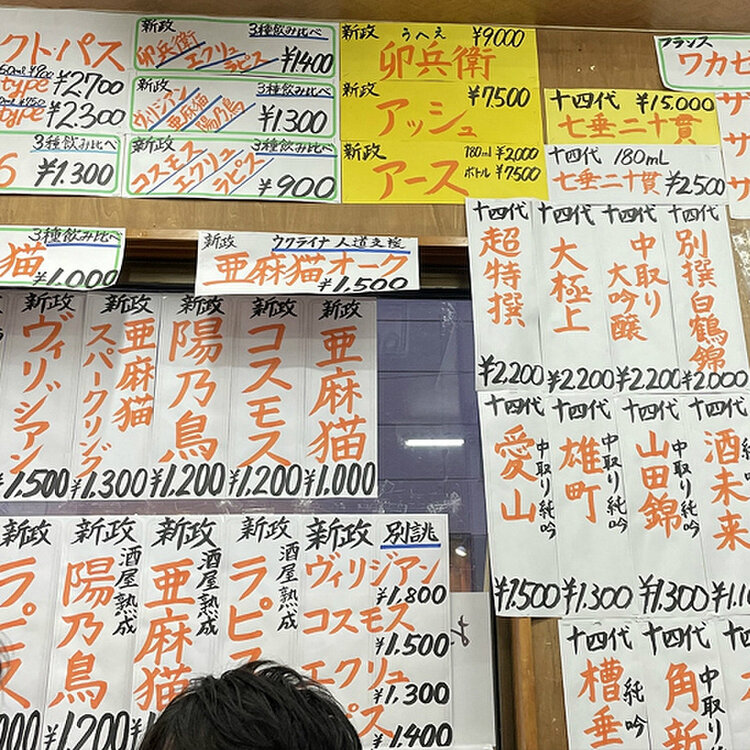 クト・パス
type ¥2700
type ¥2300
3種飲み比べ
¥1.300
新政 3種飲み比べ
卯兵衛
エクリュ
ラピス
¥1400
新政 3種飲み比べ
ヴィリジアン
亜麻猫
陽乃鳥
¥1300
新政 3種飲み比べ
コスモス
エクリュ
ラピス
¥900
新政 うへえ ¥9000
卯兵衛
新政 ¥7500
アッシュ
新政 180ml ¥2,000
アース ボトル ¥7500
十四代 ¥15,000
七垂二十貫
十四代 180mL
七垂二十貫 ¥2500
フランス
ワカ
3種飲み比べ
猫
¥1.000
新政 ウクライナ 人道支援
亜麻猫オーク
¥1,500
新政
ヴィリジアン
¥1.500
新政
亜麻猫
スパークリング
¥1.300
新政
陽乃鳥
¥1.200
新政
コスモス
¥1.200
新政
亜麻猫
¥1.000
十四代
超特撰
¥2,200
十四代
大極上
¥2.200
十四代
中取り
大吟醸
¥2.200
十四代
別撰白鶴錦
¥2.000
十四代
愛山
中取り純吟
¥1500
十四代
雄町
中取り純吟
¥1.300
十四代
山田錦
中取り純吟
¥1.300
十四代
酒未来
新政
新政
陽乃鳥
酒屋熟成
¥1.200
新政
亜麻猫
酒屋熟成
新政
ラピス
酒屋熟成
新政 別誂
ヴィリジアン
¥1.800
コスモス
¥1.500
エクリュ
¥1.300
ピス
¥1.400
十四代
槽垂
純吟
十四代
角新
中取
十四